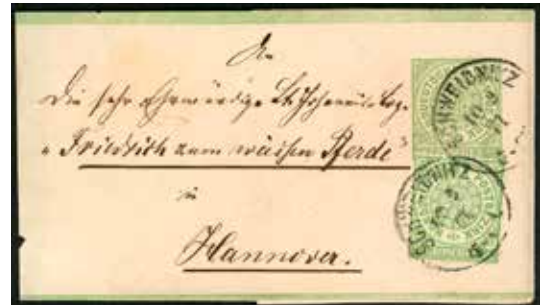 An
Die sehr Ehrwürdige St. Johannis Loge
"Friedrich zum weißen Pferde"
in
Hannover.
SCHWEIDNITZ
SCHWEIDNITZ